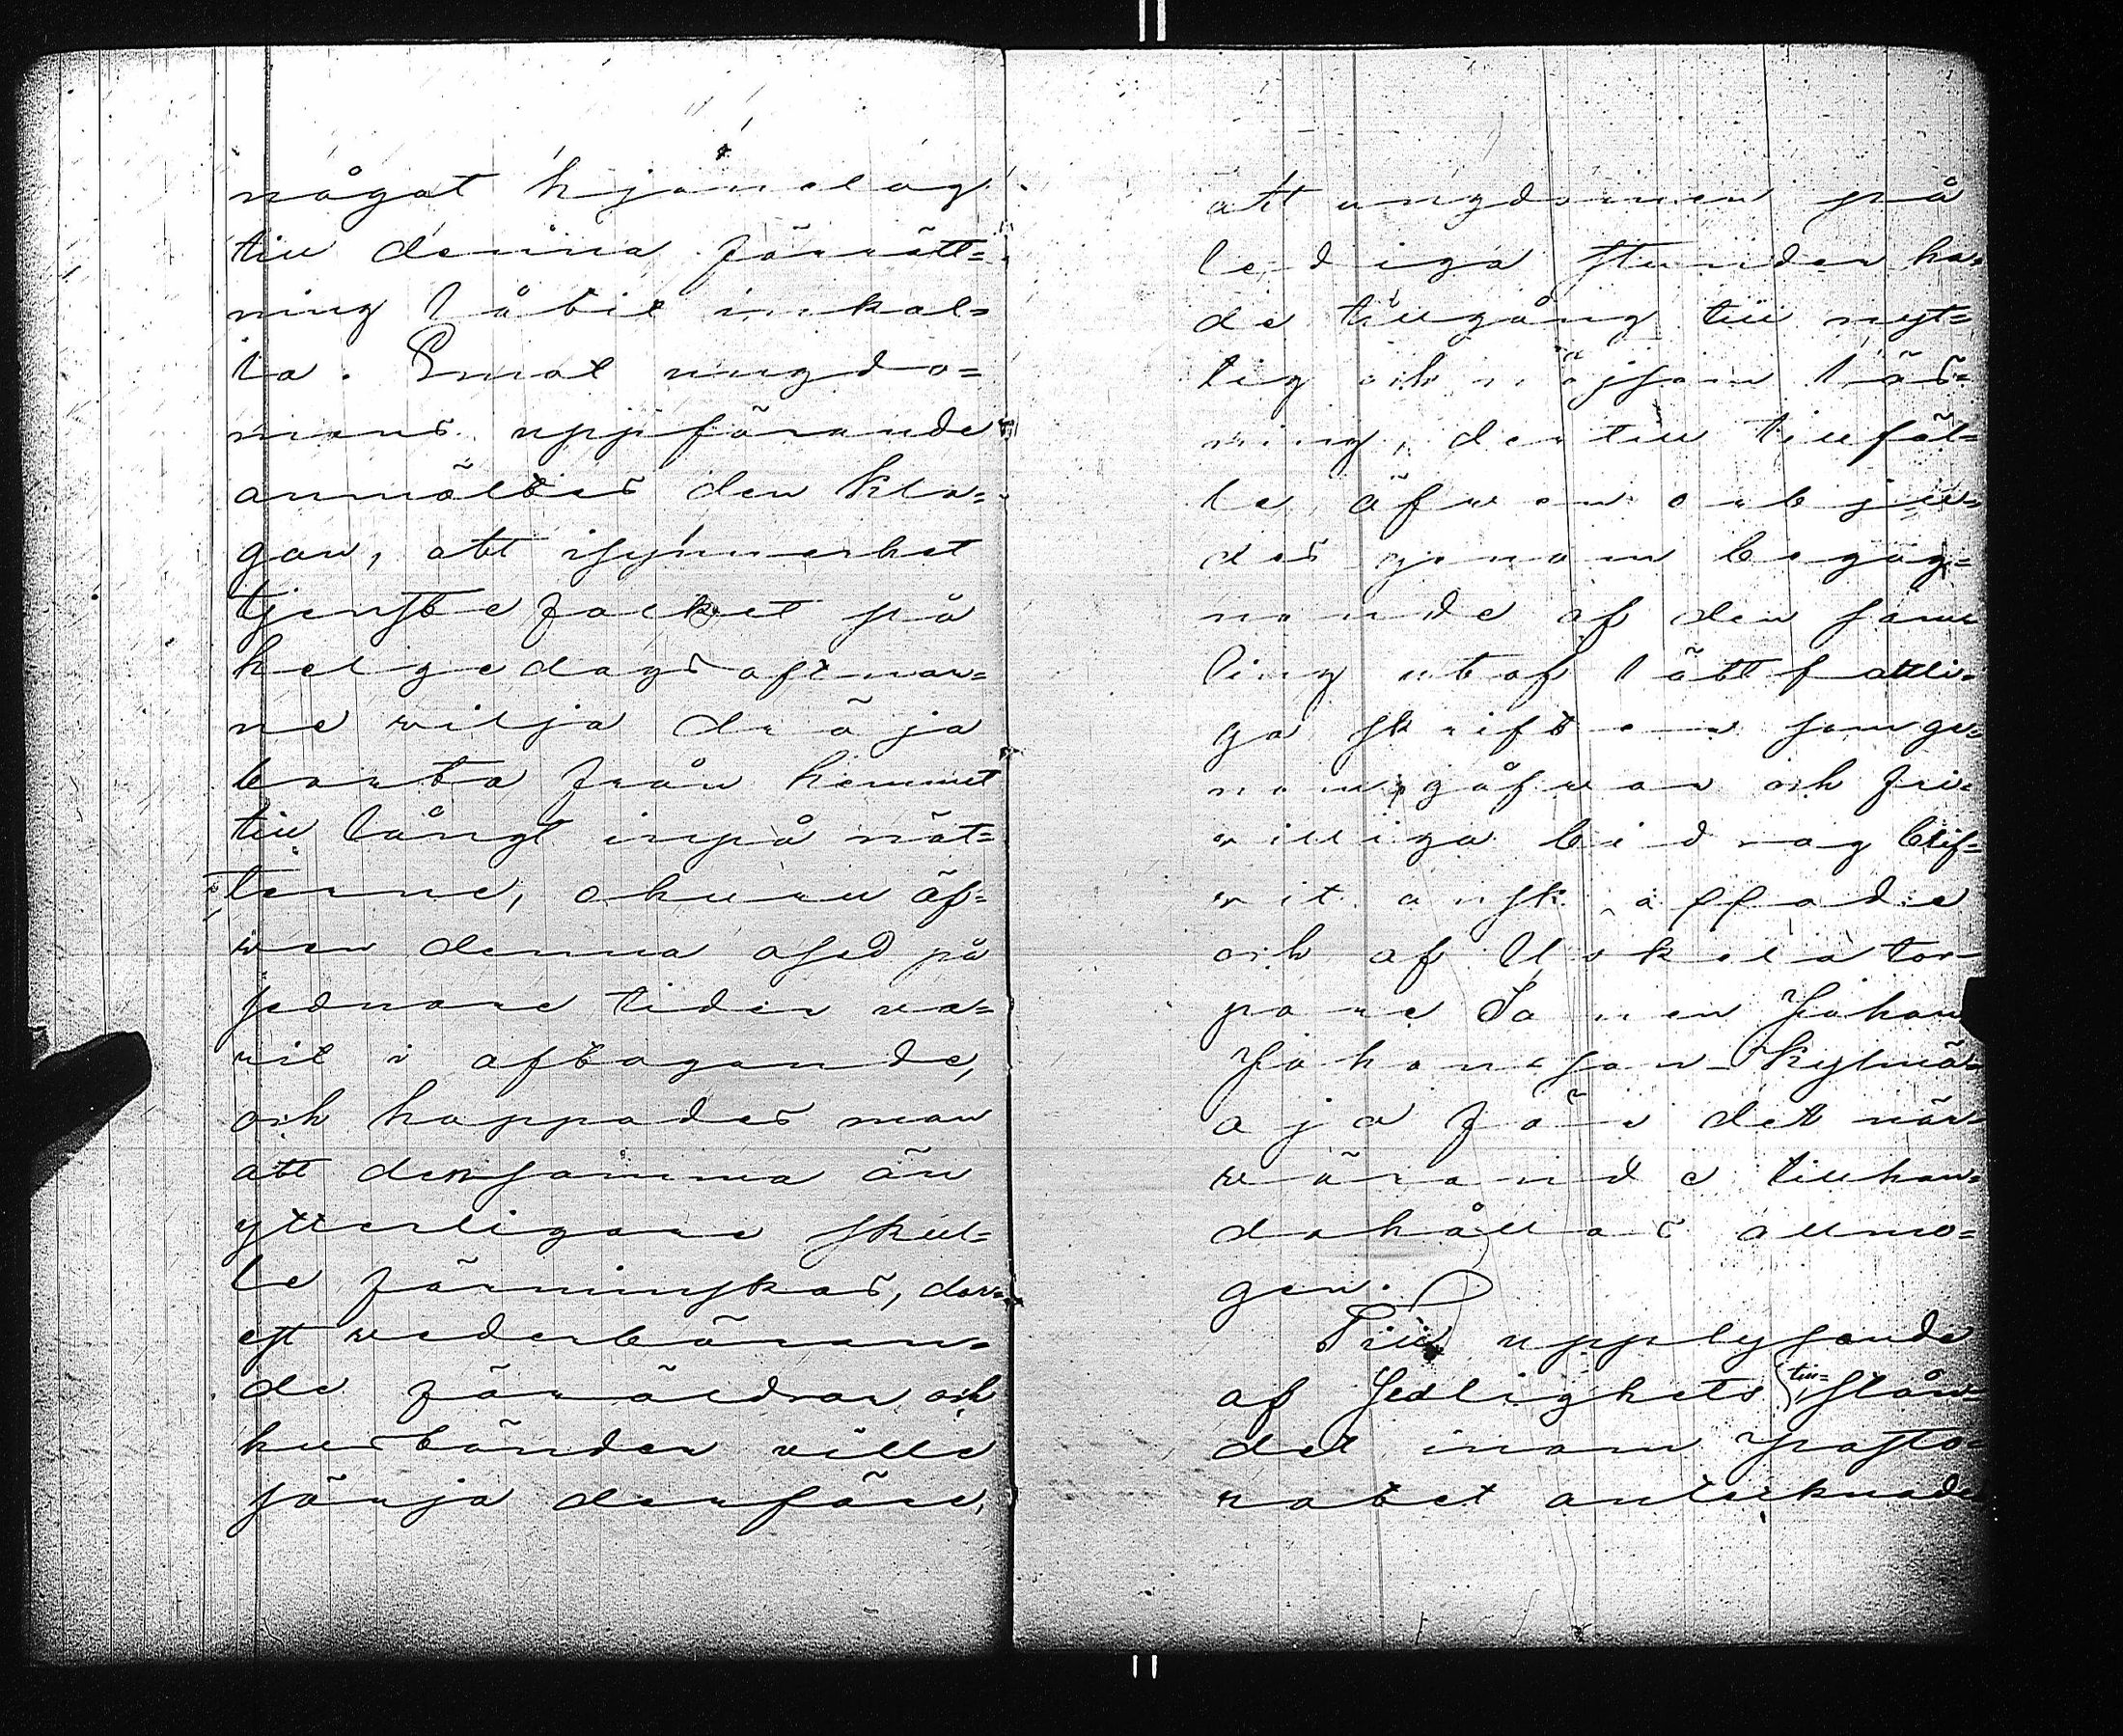 något hjonelag
till denna förrätt=
ning låtit inkal=
la. Emot ungdo=
mens uppförande
anmältes den kla=
gan, att isynnerhet
tjenstefolket på
helgedagsaftnar=
ne vilja dröja
borta från hemmet
till långt inpå nät=
terne, ehuru äf=
wen denna osed på
sednare tider va=
rit i aftagande,
och hoppades man
att densamma än
ytterligare skul=
le förminskas, der=
est wederböran=
de föräldrar och
husbönder ville
sörja derföre,
att ungdomen på
lediga stunder ha=
de tillgång till nyt=
tig och nöjsam läs=
ning, dertill tillfäl=
le äfwen erbju=
des genom begag=
nande af den sam
ling utaf lättfattli=
ga skrifter som ge=
nom gåfwor och fri=
williga bidrag blif=
wit anskaffade
och af Uskela tor
pare Sonen Johan
Johansson Kylmä=
oja för det när=
warande tillhan=
dahållas allmo=
gen.
Till upplysande
af Sedlighets till=
stån=
det inom pasto=
ratet antecknades